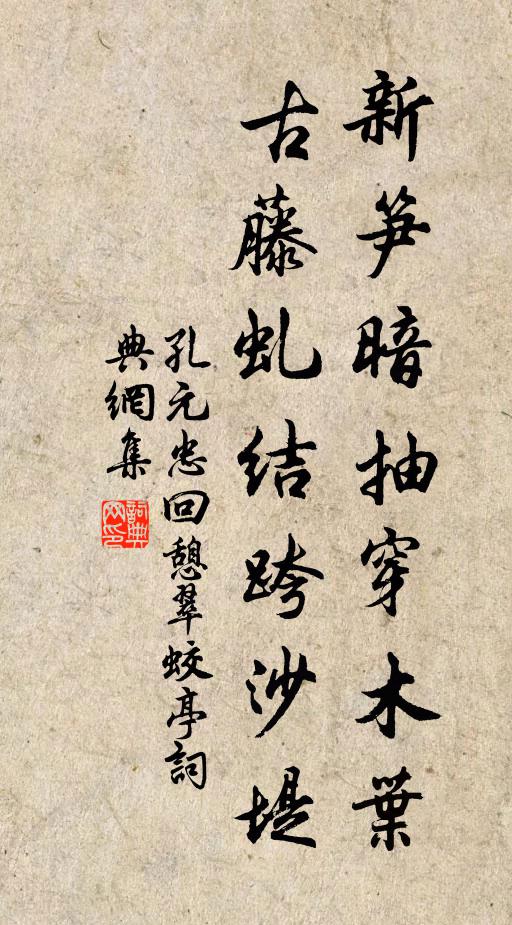 新笋暗抽穿木葉
古藤虬结跨沙堤
孔元忠回憩翠蛟亭詞
典網集
詞典
网印